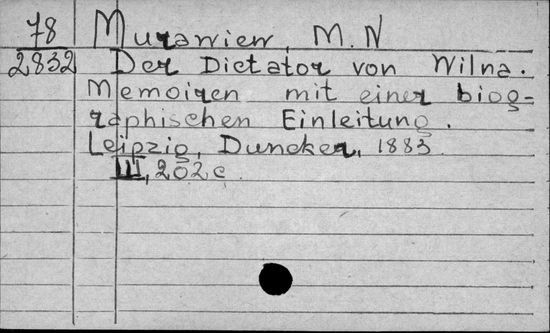 78 Murawiew, M. N
2832 Der Dictator von Wilna.
Memoiren mit einer biog-
raphischen Einleitung.
Leipzig, Duncker, 1883.
III, 202 c.